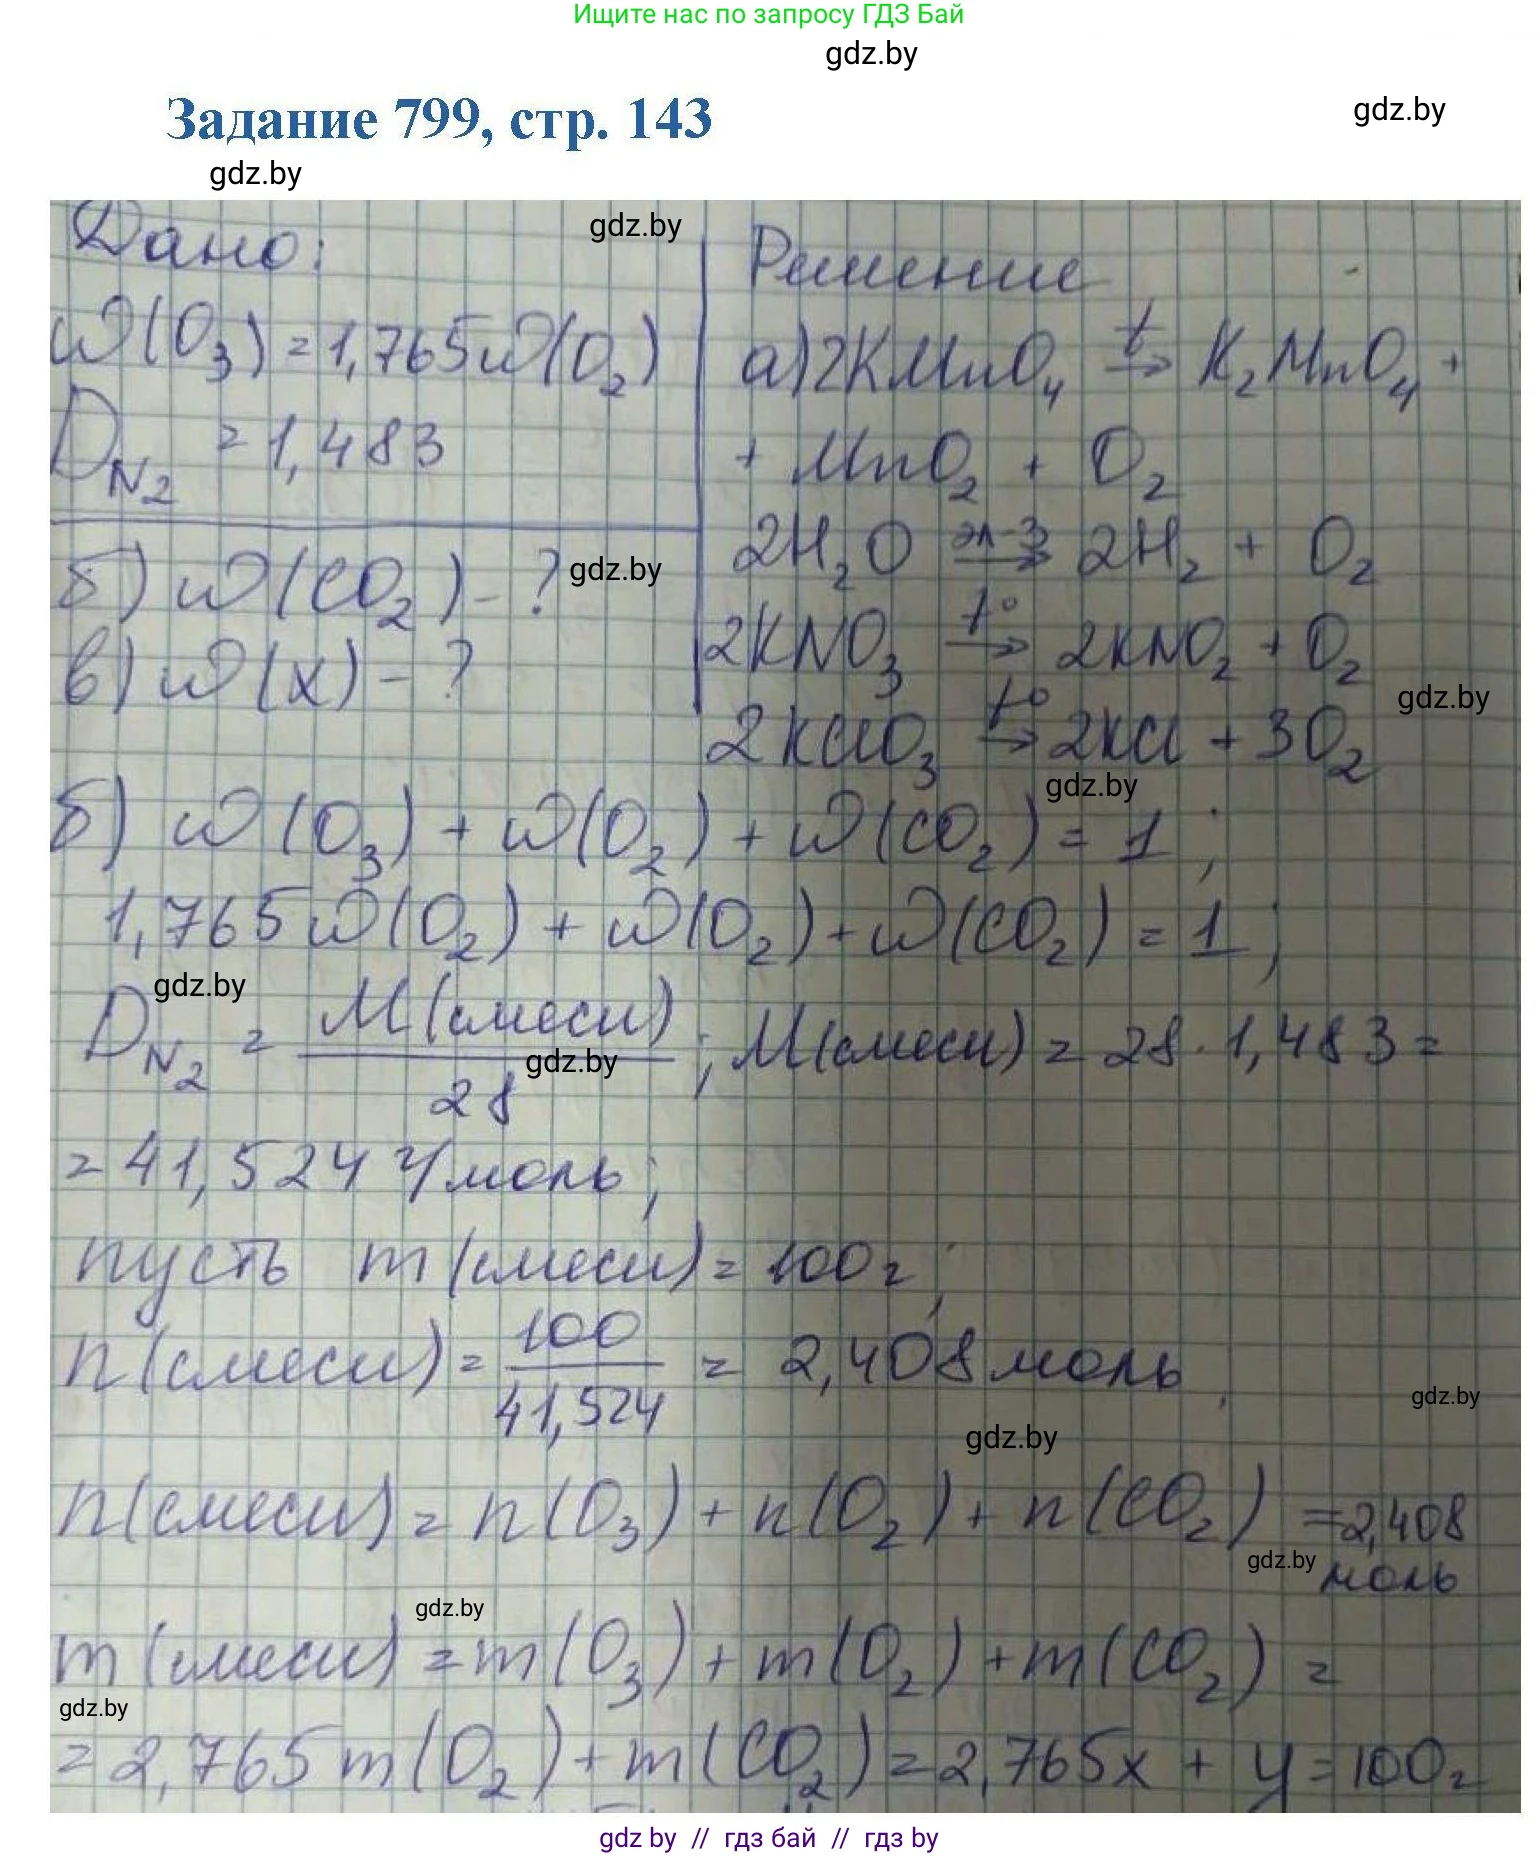 Ищите нас по запросу ГДЗ Бай
gdz.by
Задание 799, стр. 143
gdz.by
gdz.by
Дано:
gdz.by
ω(O₃) = 1,765ω(O₂)
D_N₂ = 1,483
б) ω(CO₂) - ?
gdz.by
в) ω(x) - ?
Решение
а) 2KMnO₄ →t K₂MnO₄ +
+ MnO₂ + O₂
2H₂O →эл-з 2H₂ + O₂
2KNO₃ →t° 2KNO₂ + O₂
gdz.by
2KClO₃ →t° 2KCl + 3O₂
gdz.by
б) ω(O₃) + ω(O₂) + ω(CO₂) = 1;
1,765ω(O₂) + ω(O₂) + ω(CO₂) = 1;
gdz.by
D_N₂ = M(смеси)/28; M(смеси) = 28·1,483 =
gdz.by
= 41,524 г/моль;
пусть m(смеси) = 100г;
n(смеси) = 100/41,524 = 2,408 моль,
gdz.by
gdz.by
n(смеси) = n(O₃) + n(O₂) + n(CO₂) = 2,408
gdz.by
моль
gdz.by
m(смеси) = m(O₃) + m(O₂) + m(CO₂) =
gdz.by
= 2,765m(O₂) + m(CO₂) = 2,765x + y = 100г
gdz by // гдз бай // гдз by